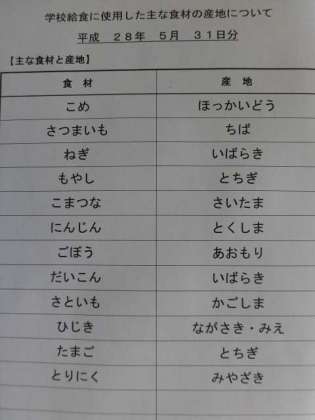 学校給食に使用した主な食材の産地について
平成 28年 5月 31日分
【主な食材と産地】
食 材 産 地
こめ ほっかいどう
さつまいも ちば
ねぎ いばらき
もやし とちぎ
こまつな さいたま
にんじん とくしま
ごぼう あおもり
だいこん いばらき
さといも かごしま
ひじき ながさき・みえ
たまご とちぎ
とりにく みやざき